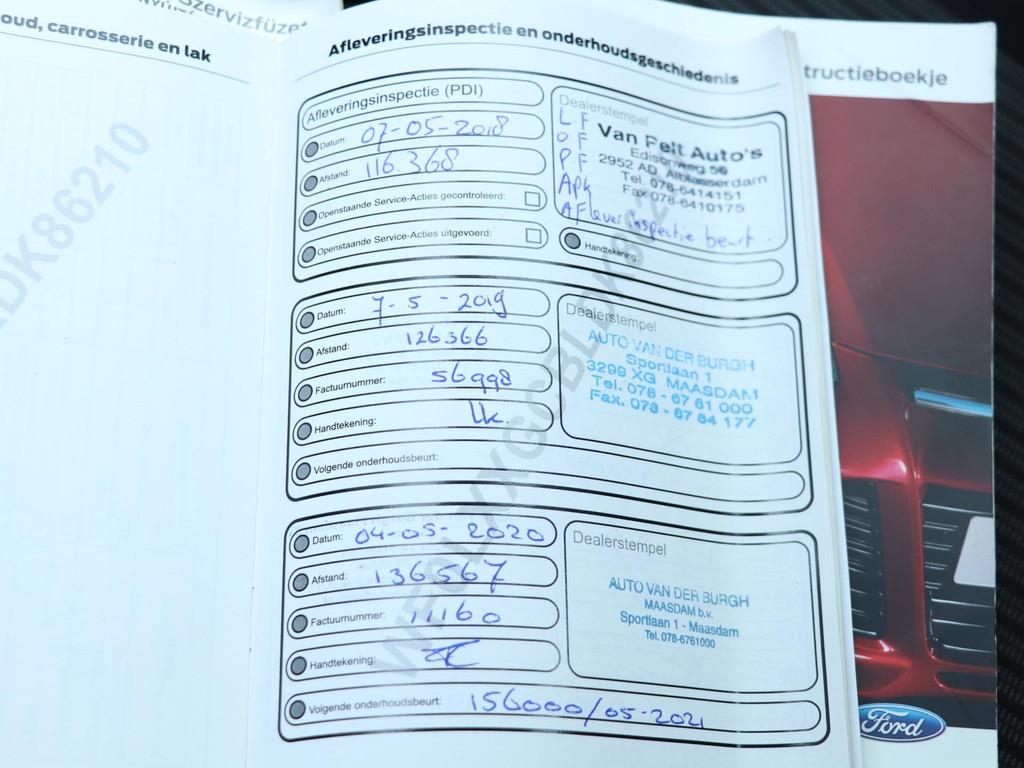 Szervizfüzet
oud, carrosserie en lak
DK86210
Afleveringsinspectie en onderhoudsgeschiedenis
Afleveringsinspectie (PDI)
Datum: 07-05-2018
Afstand: 116.368
Openstaande Service-Acties gecontroleerd:
Openstaande Service-Acties uitgevoerd:
Dealerstempel
L.F
O F
P.F
Apk
Aflever inspectie beurt.
Van Pelt Auto's
Edisonweg 56
2952 AD Alblasserdam
Tel. 078-6414151
Fax 078-6410175
Handtekening:
Datum: 7-5-2019
Afstand: 126366
Factuurnummer: 56998
Handtekening:
Volgende onderhoudsbeurt:
Dealerstempel
AUTO VAN DER BURGH
Sportlaan 1
3299 XG MAASDAM
Tel. 078 - 67 61 000
Fax. 078 - 67 64 177
Datum: 04-05-2020
Afstand: 136567
Factuurnummer: 11160
Handtekening:
Volgende onderhoudsbeurt: 156000/05-2021
Dealerstempel
AUTO VAN DER BURGH
MAASDAM b.v.
Sportlaan 1 - Maasdam
Tel. 078-6761000
tructieboekje
Ford